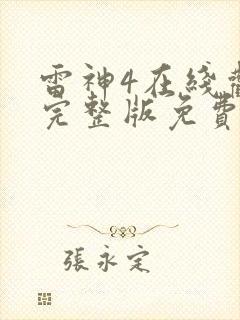 雷神4在綫觀
完整版免費
張永定